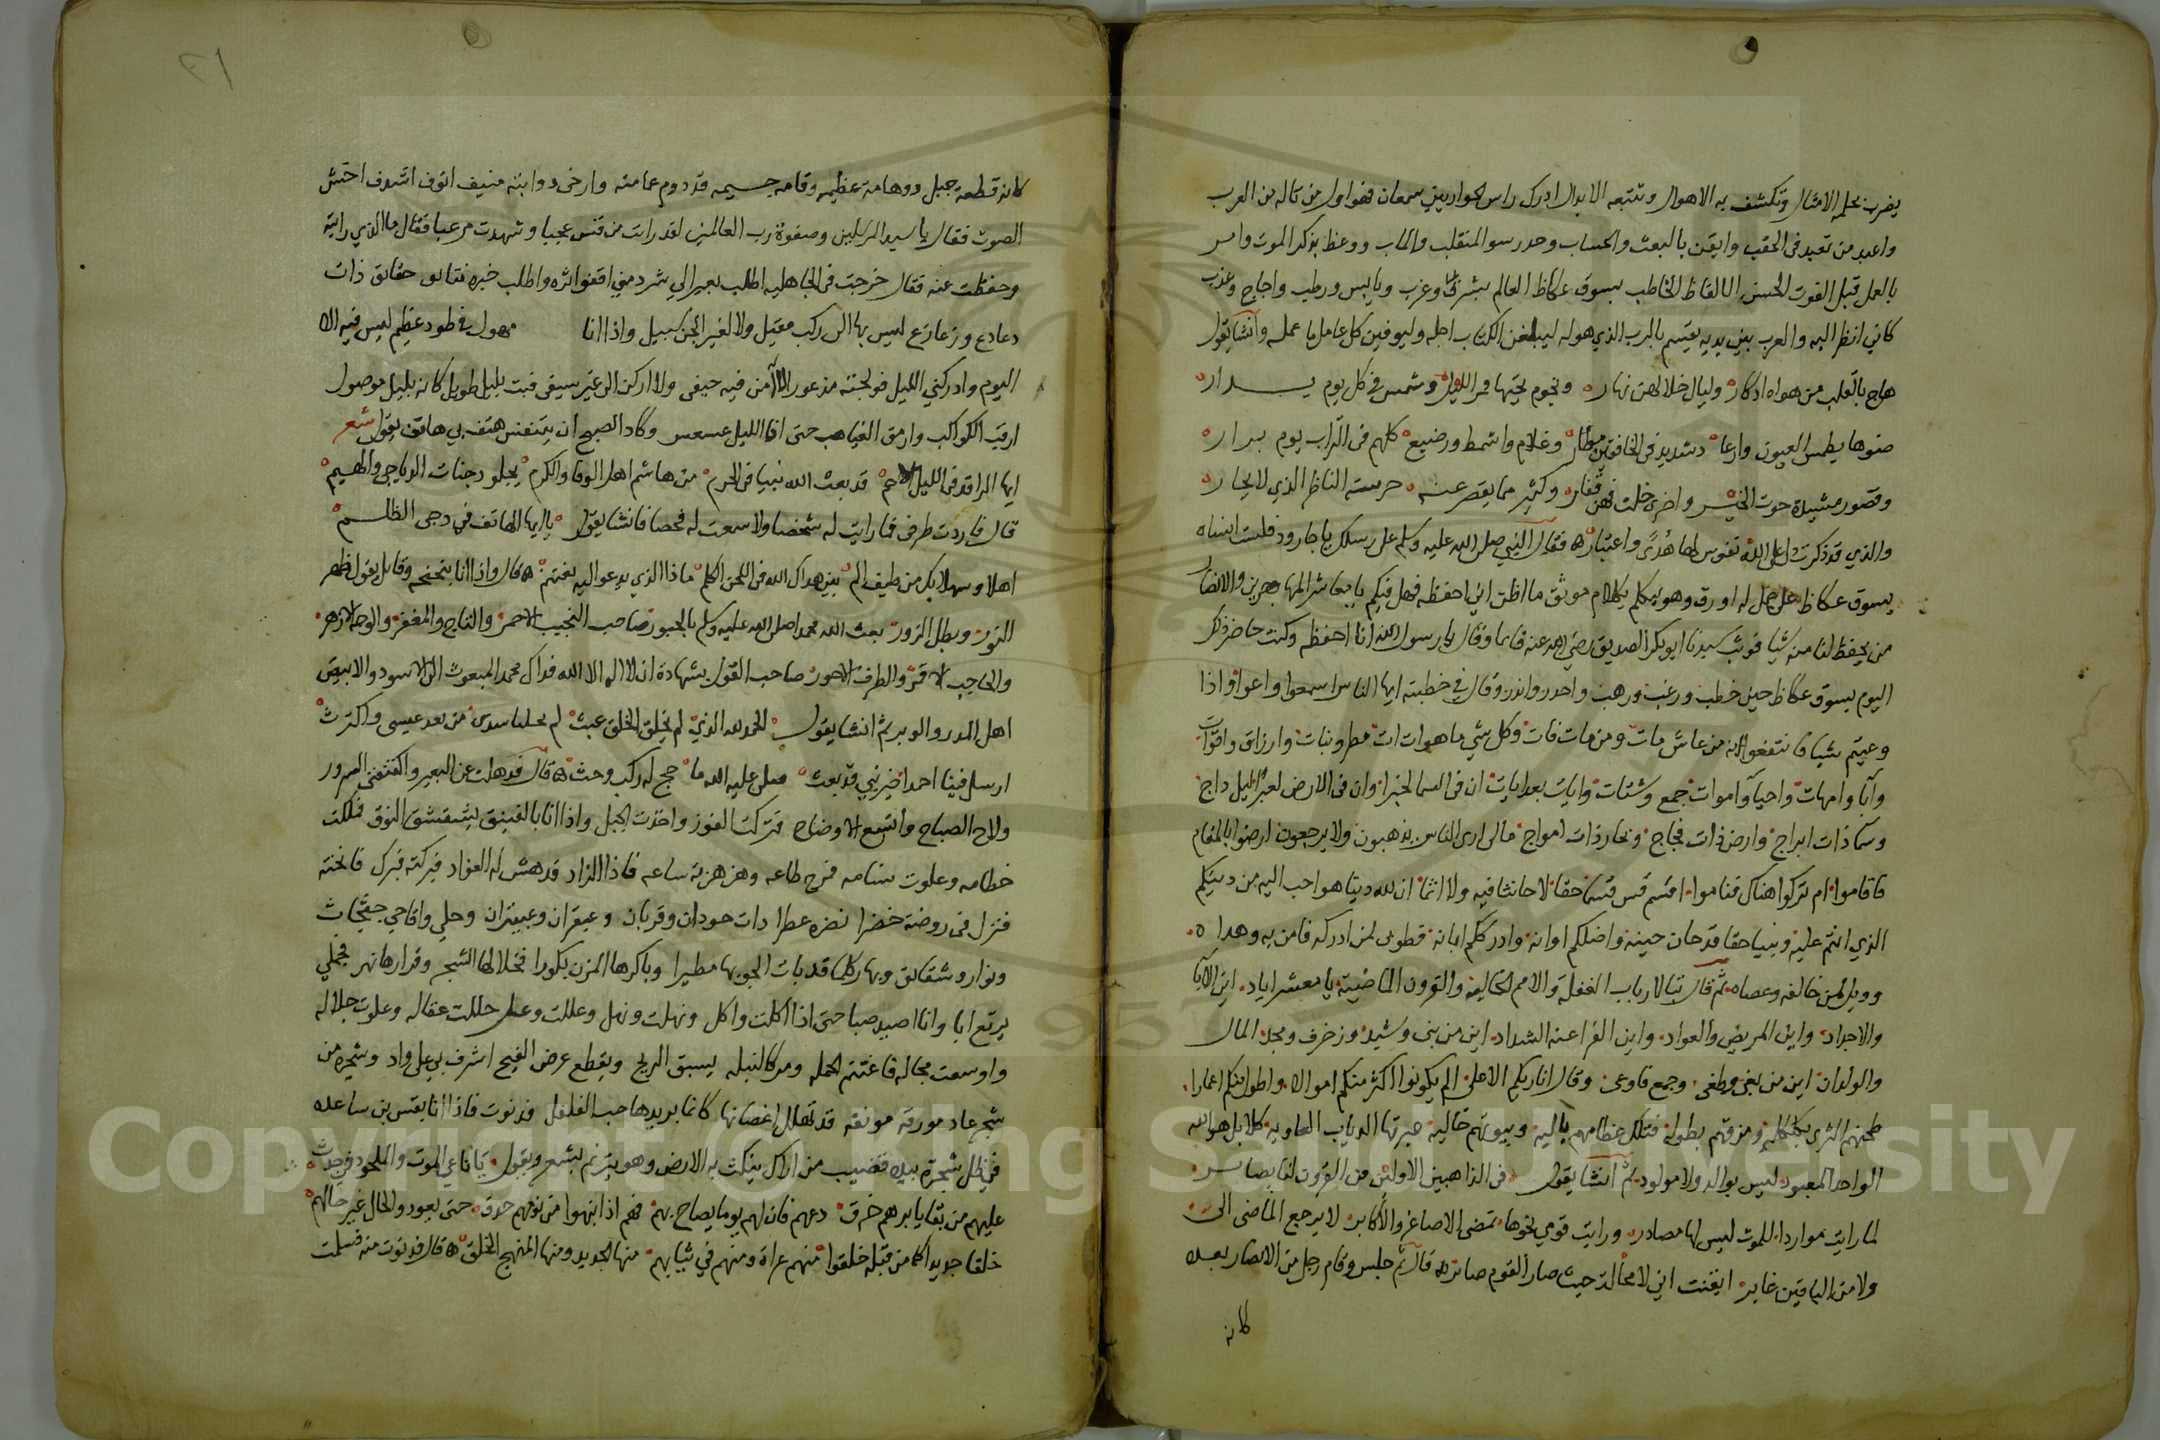 يضرب بحكمه الامثال وتكشف به الاهوال وتتبعه الابدال ادرك راس الحواريين سمعان فهو اول من تاله من العرب
واعبد من تعبد في الحقب وايقن بالبعث والحساب وحدر سو المنقلب والماب ووعظ بذكر الموت وامر
بالعمل قبل الفوت الحسن الالفاظ الخاطب بسوق عكاظ العالم بشرق وغرب ويابس ورطب واجاج وعذب
كاني انظر اليه والعرب بين يديه يقسم بالرب الذي هو له ليبلغن الكتاب اجله وليوفين كل عامل ما عمله وانشا يقول
هاج بالقلب من هواه ادكار وليال خلالهن نهار ونجوم يحثها قمر الليل وشمس في كل يوم يدار
ضوها يطمس العيون وارعا د شديد في الخافقين مطار وغلام واشمط ورضيع كلهم في التراب يوم يزار
وقصور مشيدة حوت الخير واخرى خلت فهن قفار وكثير مما يقصر عنه حرسه الناظر الذي لا يحار
والذي قد ذكرت دل على الله نفوس لها هدى واعتبار فقال النبي صلى الله عليه وسلم على رسلك يا جارود فلست انساه
بسوق عكاظ على جمل له اورق وهو يتكلم بكلام موثق ما اظن اني احفظه فهل فيكم يا معاشر المهاجرين والانصار
من يحفظ لنا منه شيا فوثب سيدنا ابو بكر الصديق رضي الله عنه قايما وقال يا رسول الله انا احفظه وكنت حاضر ذلك
اليوم بسوق عكاظ حين خطب ورغب ورهب وحدر وانذر وقال في خطبته ايها الناس اسمعوا واعوا واذا
وعيتم شيا فانتفعوا انه من عاش مات ومن مات فات وكل شي ما هو ات ات مطر ونبات وارزاق واقوات
وآبا وامهات واحيا واموات جمع وشتات وايات بعد ايات ان في السما لخبرا وان في الارض لعبرا ليل داج
وسما ذات ابراج وارض ذات فجاج وبحار ذات امواج مالي ارى الناس يذهبون ولا يرجعون ارضوا بالمقام
فاقاموا ام تركوا هناك فناموا اقسم قس قسما حقا لا حانثا فيه ولا اثما ان لله دينا هو احب اليه من دينكم
الذي انتم عليه ونبيا حقا قد حان حينه واضلكم اوانه وادرككم ابانه فطوبى لمن ادركه فامن به وهداه
وويل لمن خالفه وعصاه ثم قال تبا لارباب الغفلة والامم الخالية والقرون الماضية يا معشر اياد اين الآبا
والاجداد واين المريض والعواد واين الفراعنة الشداد اين من بنى وشيد وزخرف ومجد المال
والولدان اين من بغى وطغى وجمع فاوعى وقال انا ربكم الاعلى الم يكونوا اكثر منكم اموالا واطول منكم اعمارا
طحنهم الثرى بكلكله ومزقهم بطوله فتلك عظامهم بالية وبيوتهم خالية عمرتها الذياب العاوية كلا بل هو الله
الواحد المعبود ليس بوالد ولا مولود ثم انشا يقول في الذاهبين الاولين من القرون لنا بصاير
لما رايت مواردا للموت ليس لها مصادر ورايت قومي نحوها تمضي الاصاغر والاكابر لا يرجع الماضي الي
ولا من الباقين غابر ايقنت اني لا محالة حيث صار القوم صاير قال ثم جلس وقام رجل من الانصار بعده
كانه
٢١
كانه قطعة جبل ذو هامة عظيمه وقامه جسيمه قد دوم عمامته وارخى دوابته منيف انوف اشدف احش
الصوت فقال يا سيد المرسلين وصفوة رب العالمين لقد رايت من قس عجبا وشهدت مرعبا فقال ما الذي رايته
وحفظت عنه فقال خرجت في الجاهليه اطلب بعيرا لي شرد مني اقفوا اثره واطلب خبره فتالق حقايق ذات
دعادع وزعازع ليس بها الركب مقيل ولا لغير الجن سبيل واذا انا مهول في طود عظيم ليس فيه الا
اليوم وادركني الليل فولجته مذعورا لا آمن فيه حيفي ولا اركن الى غير سيفي فبت بليل طويل كانه بليل موصول
ارقب الكواكب وارمق الغياهب حتى اذا الليل عسعس وكاد الصبح ان يتنفس هتف بي هاتف يقول شعر
ايها الراقد في الليل الاحم قد بعث الله نبيا في الحرم من هاشم اهل الوفا والكرم يجلو دجنات الدياجي والهيم
قال فاردت طرفي فما رايت له شخصا ولا سمعت له فحصا فانشا يقول يا ايها الهاتف في دجى الظلم
اهلا وسهلا بك من طيف الم بين هداك الله في اللحن الكلم ماذا الذي يدعو اليه يغتنم قال واذا انا بنحنحه وقايل يقول ظهر
النور وبطل الزور بعث الله محمدا صلى الله عليه وسلم بالحبور صاحب النجيب الاحمر والتاج والمغفر والوجه الازهر
والحاجب الاقمر والطرف الاحور صاحب القول بشهادة ان لا اله الا الله فداك محمد المبعوث الى الاسود والابيض
اهل المدر والوبر ثم انشا يقول الحمد لله الذي لم يخلق الخلق عبث لم يخلنا سدى من بعد عيسى واكترث
ارسل فينا احمدا خير نبي قد بعث صلى عليه الله ما حج له ركب وحث قال فذهلت عن البعير واكتنفني السرور
ولاح الصباح واتسع الاوضاح فتركت الغور واخذت الجبل واذا انا بالفنيق يشقشق النوق فملكت
خطامه وعلوت سنامه فمرح طاعه وهزهزته ساعه فاذا الزاد قد هش له الفواد فبركته فبرك فانخته
فنزل في روضة خضرا نضره عطرا ذات حوذان وقربان وعبقران وعبيثران وحلي واقاحي جثجاث
ونوار وشقايق وبهار كلما قد بات الجو بها مطيرا وباكرها المزن بكورا فخلالها شجر وقرارها نهر فجعل
يرتع ابا وانا اصيد صبا حتى اذا اكلت واكل ونهلت ونهل وعللت وعل حللت عقاله وعلوت جلاله
واوسعت مجاله فاغتنم الحمله ومر كالنبله يسبق الريح ويقطع عرض الفيح اشرف بي على واد وشجره من
شجر عاد مورقه مونقه قد تهدل اغصانها كانما بريدها حب الفلفل فدنوت فاذا انا بقس بن ساعده
في ظل شجرة بيده قضيب من اراك ينكث به الارض وهو يترنم بشعر ويقول يا ناعي الموت والملحود في جدث
عليهم من بقايا بزهم خرق دعهم فان لهم يوما يصاح بهم فهم اذا انبهوا من نومهم حدق حتى يعود والحال غير حالهم
خلقا جديدا كما من قبله خلقوا منهم عراة ومنهم في ثيابهم منها الجديد ومنها المنهج الخلق قال فدنوت منه فسلمت
Copyright © King Saud University